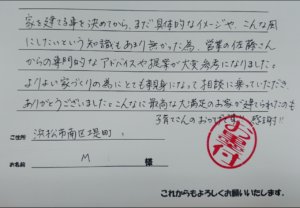 家を建てる事を決めてから、まだ具体的なイメージや、こんな風
にしたいという知識もあまり無かった為、営業の佐藤さん
からの専門的なアドバイスや提案が大変参考になりました。
よりよい家づくりの為にとても親身になって相談に乗っていただき、
ありがとうございました。こんなに最高な大満足のお家が建てられたのも
さんのおかげです!! 感謝!!
ご住所 浜松市南区堤町
お名前 M 様
これからもよろしくお願いいたします。